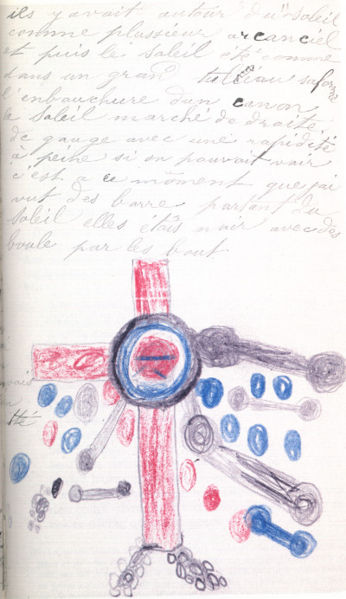 ils y avait autour d'un soleil
comme plassieur arcanciel
et puis le soleil comme
dans un gran
l'enbauchure d'un canon
le soleil marché de draite
de gauge avec une rapidité
à peine si on pouvait voir
c'est a ce mōment que j'ai
vut des barre partant du
soleil elles étais noir avec des
boule par les bout
vais
tté